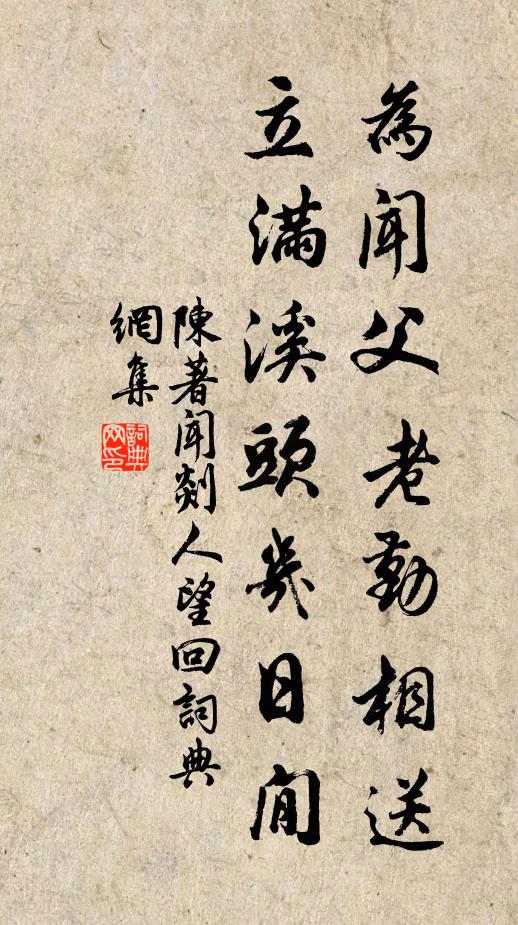 為聞父老勤相送
立滿溪頭幾日間
陳著聞剡人望回詞典
網集
詞典
网印